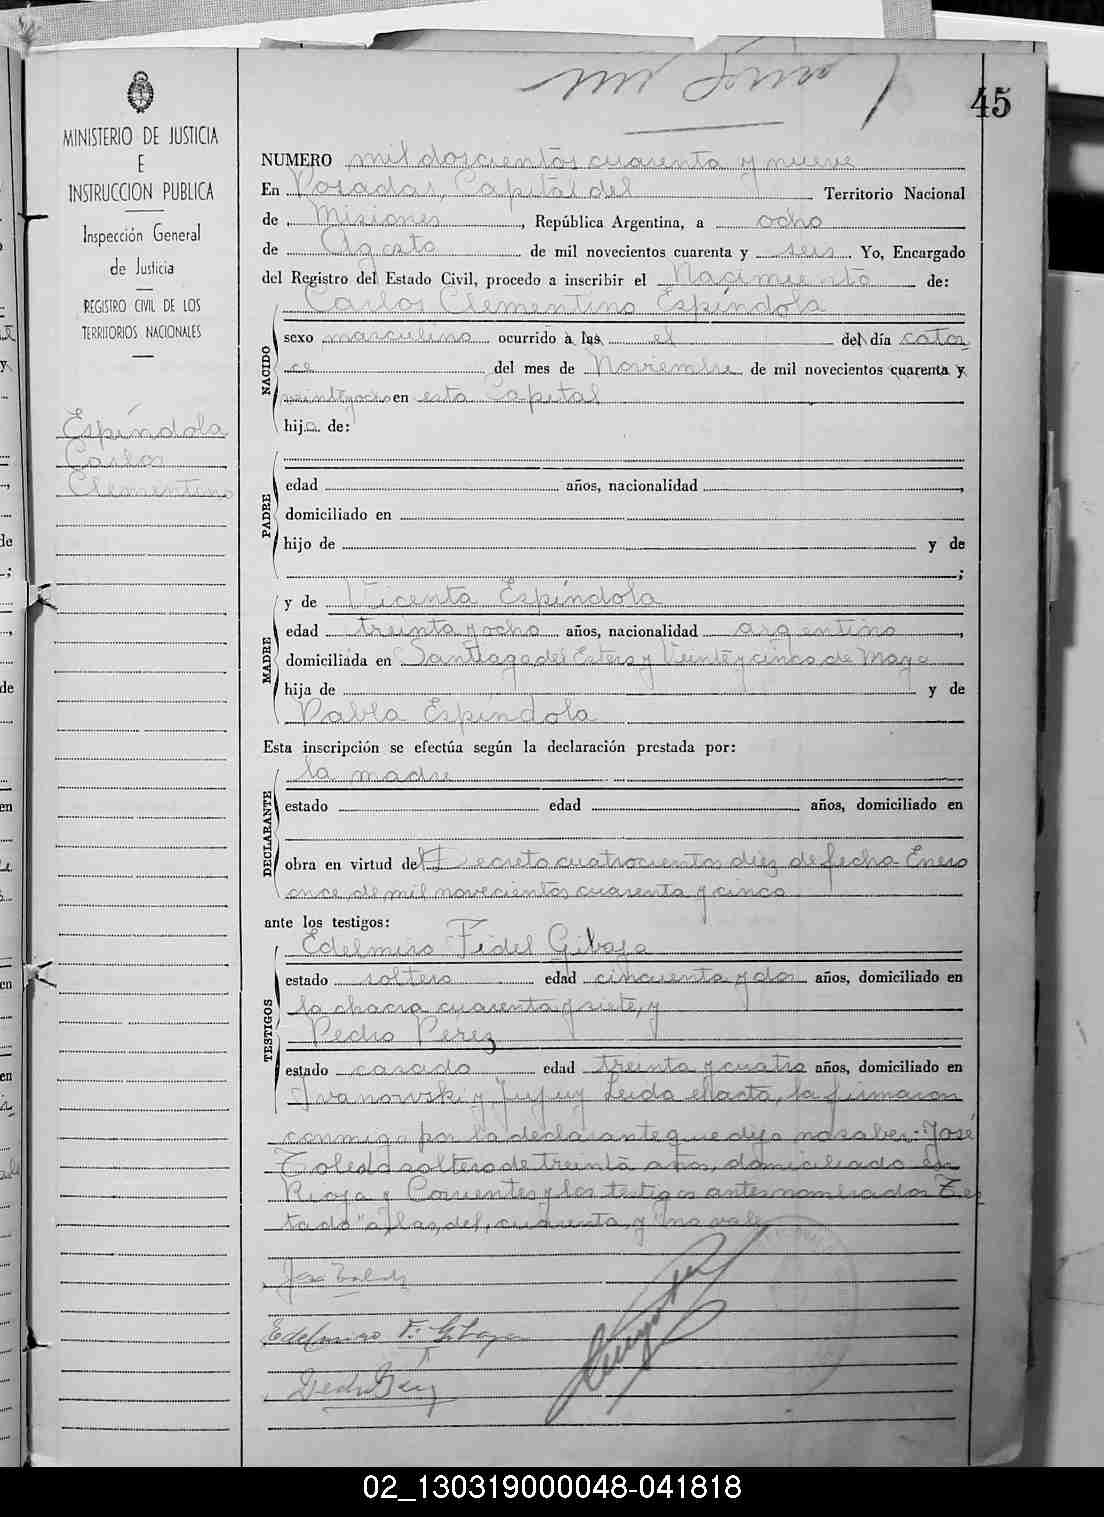 45
MINISTERIO DE JUSTICIA
E
INSTRUCCION PUBLICA
Inspección General
de Justicia
REGISTRO CIVIL DE LOS
TERRITORIOS NACIONALES
Espíndola
Carlos
Clementino
NUMERO mil doscientos cuarenta y nueve
En Posadas, Capital del Territorio Nacional
de Misiones, República Argentina, a ocho
de Agosto de mil novecientos cuarenta y seis. Yo, Encargado
del Registro del Estado Civil, procedo a inscribir el Nacimiento de:
Carlos Clementino Espíndola
NACIDO
sexo masculino ocurrido à las el del día cator
ce del mes de Noviembre de mil novecientos cuarenta y
en esta Capital
hijo de:
PADRE
edad años, nacionalidad ,
domiciliado en
hijo de y de
;
MADRE
y de Vicenta Espíndola
edad treinta y ocho años, nacionalidad argentino,
domiciliada en Santiago del Estero y Veinte y cinco de Mayo
hija de y de
Pabla Espíndola
Esta inscripción se efectúa según la declaración prestada por:
DECLARANTE
la madre
estado edad años, domiciliado en
obra en virtud del Decreto cuatrocientos diez de fecha Enero
once, de mil novecientos cuarenta y cinco
ante los testigos:
TESTIGOS
Edelmiro Fidel Gibaja
estado soltero edad cincuenta y dos años, domiciliado en
la chacra cuarenta y siete, y
Pedro Perez
estado casado edad treinta y cuatro años, domiciliado en
Ivanowski y Jujuy Leida el acta, la firmaron
conmigo por la declarante que dijo no saber: José
Toledo soltero de treinta años, domiciliado en
Rioja y Corrientes y los testigos antes nombrados Tes
tado "a, las, del, cuarenta, y" no vale
Edelmiro F. Gibaja
02_130319000048-041818